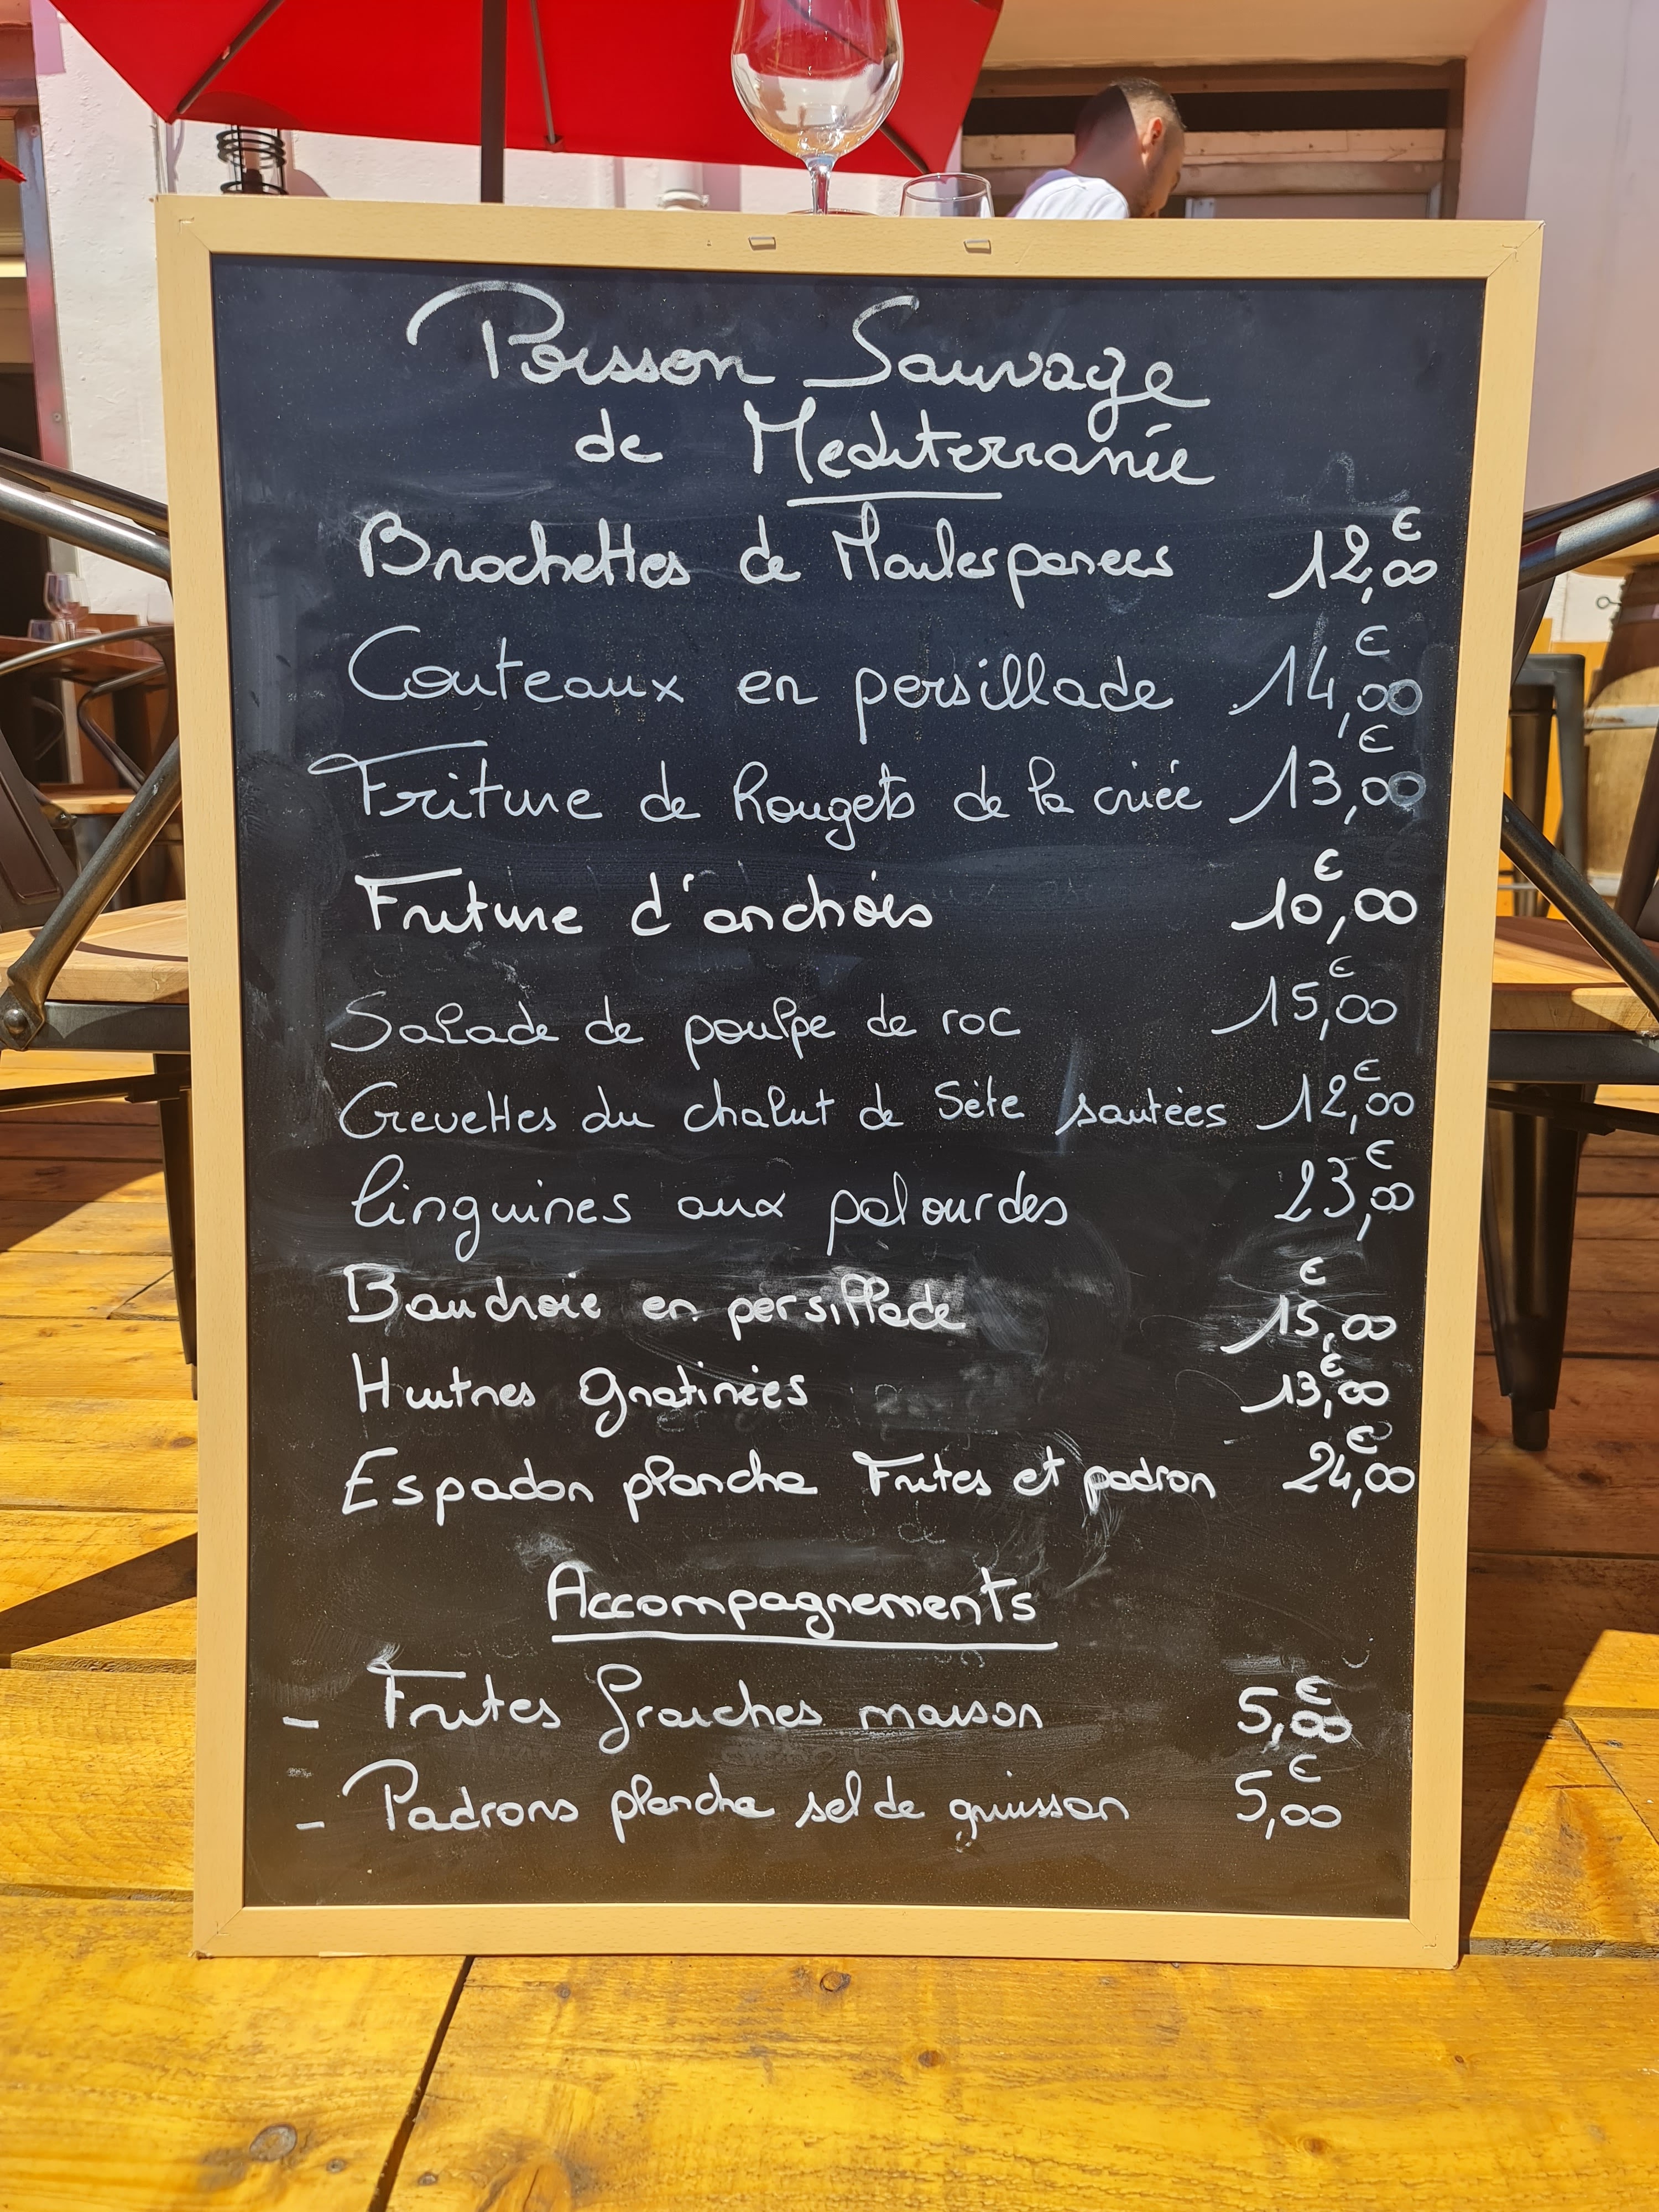 Poisson Sauvage
de Mediterranée
Brochettes de Moules panees 12,00 €
Couteaux en persillade 14,00 €
Friture de Rougets de la criée 13,00 €
Friture d'anchois 10,00 €
Salade de poulpe de roc 15,00 €
Crevettes du chalut de Sète sautées 12,00 €
linguines aux palourdes 23,00 €
Baudroie en persillade 15,00 €
Huitres gratinées 13,00 €
Espadon plancha Frites et padron 24,00 €
Accompagnements
- Frites fraiches maison 5,00 €
- Padrons plancha sel de gruissan 5,00 €